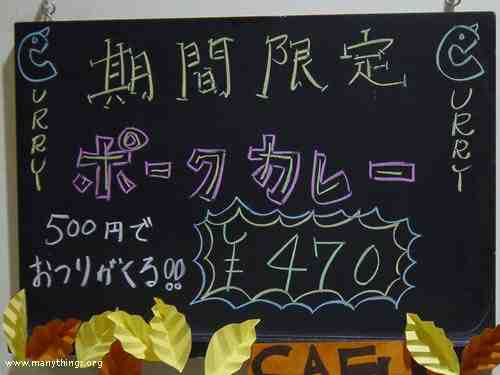 CURRY
期間限定
CURRY
ポークカレー
500円で
おつりがくる!!
¥470
www.manythings.org